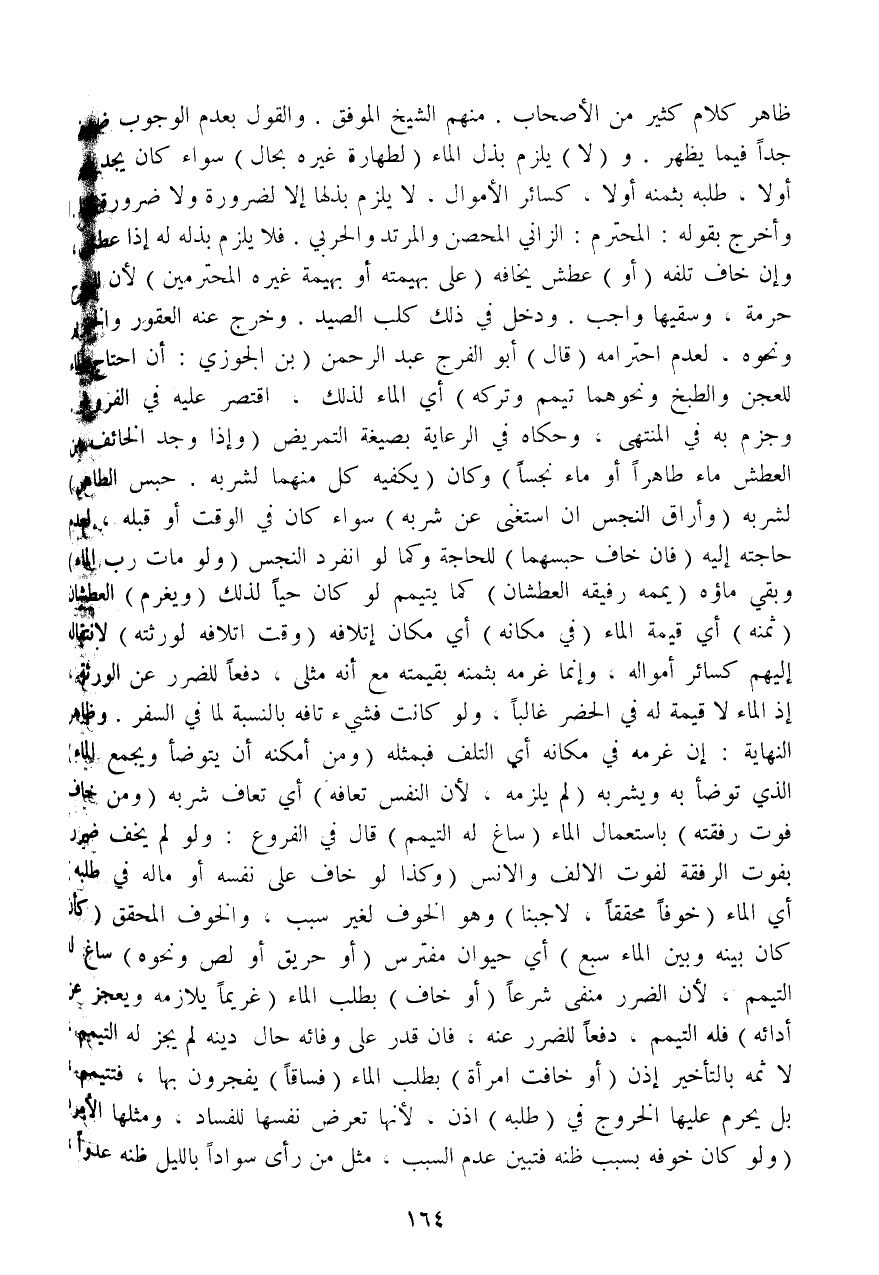 ظاهر كلام كثير من الأصحاب . منهم الشيخ الموفق . والقول بعدم الوجوب
جداً فيما يظهر . و ( لا ) يلزم بذل الماء ( لطهارة غيره بحال ) سواء كان يجد
أولا ، طلبه بثمنه أولا ، كسائر الأموال . لا يلزم بذلها إلا لضرورة ولا ضرورة
وأخرج بقوله : المحترم : الزاني المحصن والمرتد والحربي . فلا يلزم بذله له إذا عطش
وإن خاف تلفه ( أو ) عطش يخافه ( على بهيمته أو بهيمة غيره المحترمين ) لأن
حرمة ، وسقيها واجب . ودخل في ذلك كلب الصيد . وخرج عنه العقور
ونحوه . لعدم احترامه ( قال ) أبو الفرج عبد الرحمن ( بن الجوزي : أن احتاج
للعجن والطبخ ونحوهما تيمم وتركه ) أي الماء لذلك . اقتصر عليه في الفروع
وجزم به في المنتهى ، وحكاه في الرعاية بصيغة التمريض ( وإذا وجد الخائف من
العطش ماء طاهراً أو ماء نجساً ) وكان ( يكفيه كل منهما لشربه . حبس الطاهر )
لشربه ( وأراق النجس ان استغنى عن شربه ) سواء كان في الوقت أو قبله ، لعدم
حاجته إليه ( فان خاف حبسهما ) للحاجة وكما لو انفرد النجس ( ولو مات رب الماء )
وبقي ماؤه ( يممه رفيقه العطشان ) كما يتيمم لو كان حياً لذلك ( ويغرم ) العطشان
( ثمنه ) أي قيمة الماء ( في مكانه ) أي مكان إتلافه ( وقت اتلافه لورثته ) لانتقاله
إليهم كسائر أمواله ، وإنما غرمه بثمنه بقيمته مع أنه مثلى ، دفعاً للضرر عن الورثة ،
إذ الماء لا قيمة له في الحضر غالباً ، ولو كانت فشيء تافه بالنسبة لما في السفر . وظاهر
النهاية : إن غرمه في مكانه أي التلف فبمثله ( ومن أمكنه أن يتوضأ ويجمع الماء )
الذي توضأ به ويشربه ( لم يلزمه ، لأن النفس تعافه ) أي تعاف شربه ( ومن خاف
فوت رفقته ) باستعمال الماء ( ساغ له التيمم ) قال في الفروع : ولو لم يخف ضرر
بفوت الرفقة لفوت الالف والانس ( وكذا لو خاف على نفسه أو ماله في طلبه )
أي الماء ( خوفاً محققاً ، لاجبنا ) وهو الخوف لغير سبب ، والخوف المحقق ( كأن
كان بينه وبين الماء سبع ) أي حيوان مفترس ( أو حريق أو لص ونحوه ) ساغ له
التيمم ، لأن الضرر منفى شرعاً ( أو خاف ) بطلب الماء ( غريماً يلازمه ويعجز عن
أدائه ) فله التيمم ، دفعاً للضرر عنه ، فان قدر على وفائه حال دينه لم يجز له التيمم
لا ثمه بالتأخير إذن ( أو خافت امرأة ) بطلب الماء ( فساقاً ) يفجرون بها ، فتتيمم
بل يحرم عليها الخروج في ( طلبه ) اذن . لأنها تعرض نفسها للفساد ، ومثلها الأمرد
( ولو كان خوفه بسبب ظنه فتبين عدم السبب ، مثل من رأى سواداً بالليل ظنه عدواً
١٦٤